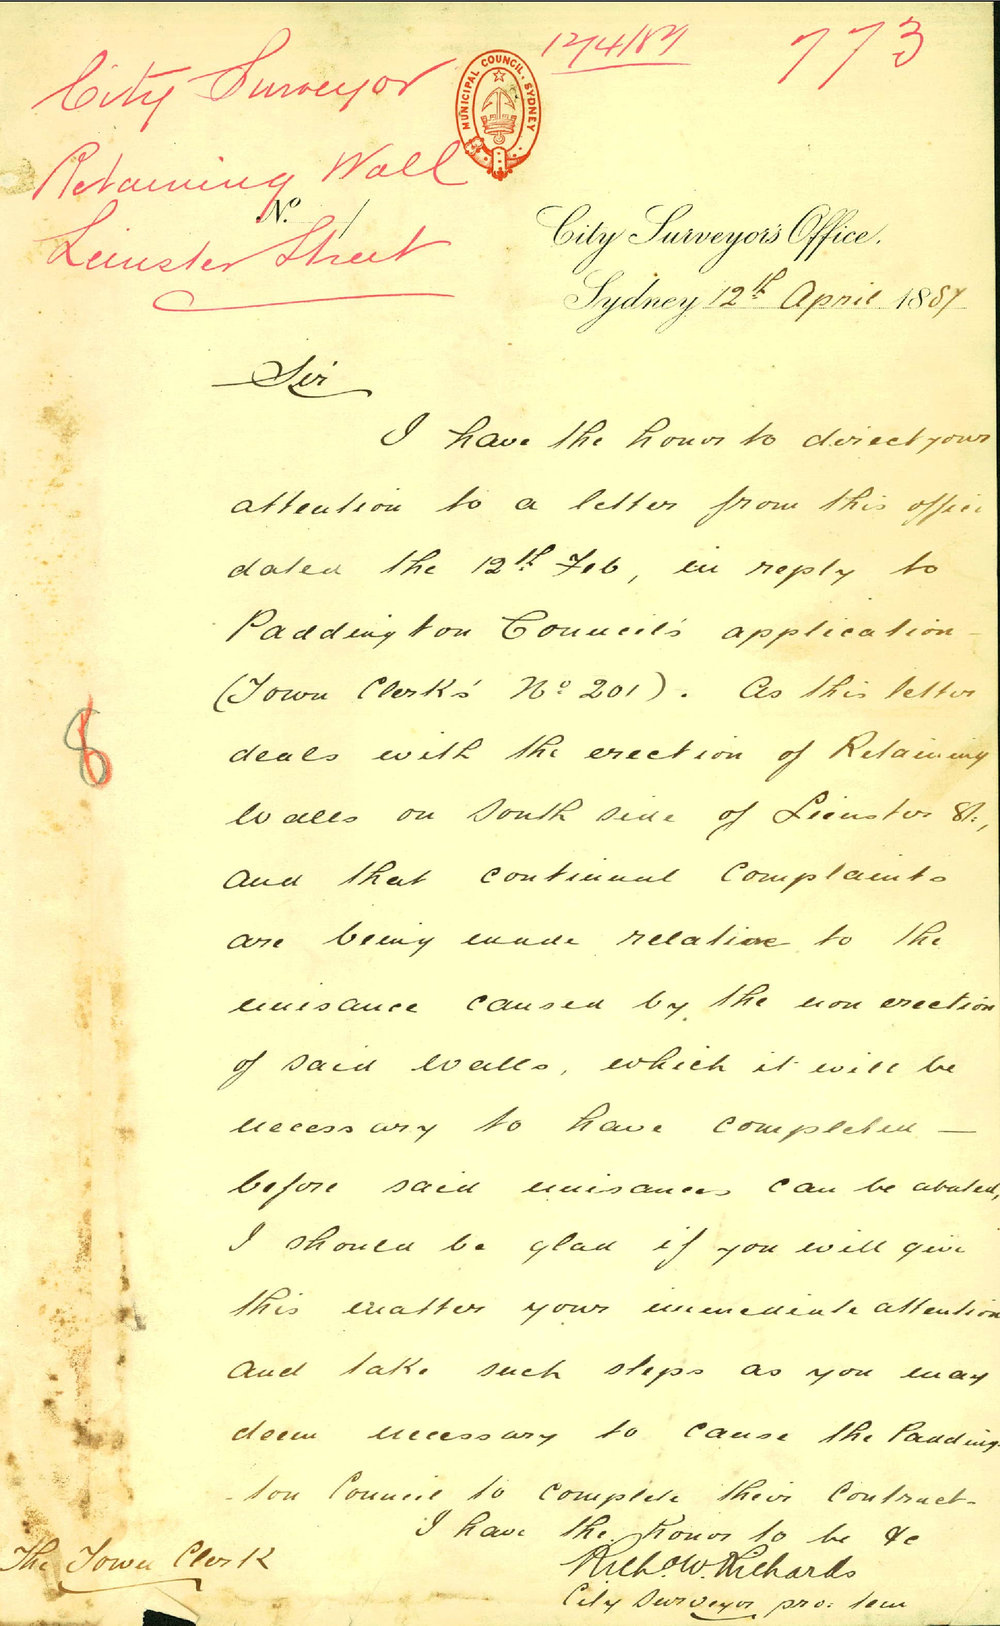 12/4/87
773
City Surveyor
Retaining Wall
Leinster Street
MUNICIPAL COUNCIL, SYDNEY
No.
City Surveyor's Office.
Sydney 12th April 1887
Sir
I have the honor to direct your
attention to a letter from this office
dated the 12th Feb, in reply to
Paddington Council's application
(Town Clerk's No 201). As this letter
deals with the erection of Retaining
Walls on South side of Leinster St.,
and that continual complaints
are being made relative to the
nuisance caused by the non erection
of said Walls, which it will be
necessary to have completed —
before said nuisances can be abated,
I should be glad if you will give
this matter your immediate attention
and take such steps as you may
deem necessary to cause the Padding-
-ton Council to complete their Contract-
I have the honor to be &c
Richd. W. Richards
City Surveyor pro: tem
The Town Clerk
8